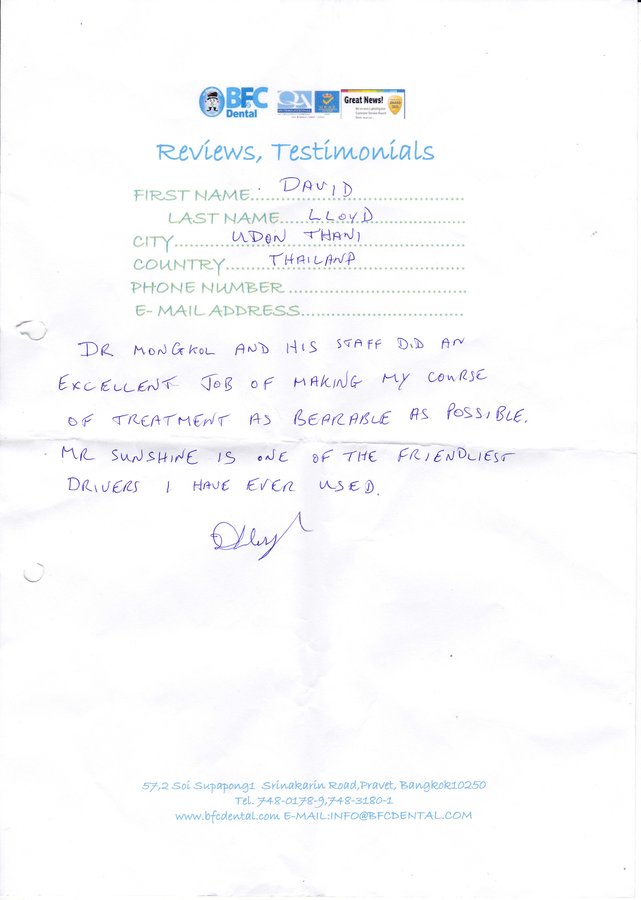 BFC
Dental
Great News!
Reviews, Testimonials
FIRST NAME. DAVID
LAST NAME LLOYD
CITY UDON THANI
COUNTRY THAILAND
PHONE NUMBER
E-MAIL ADDRESS
DR MONGKOL AND HIS STAFF DID AN
EXCELLENT JOB OF MAKING MY COURSE
OF TREATMENT AS BEARABLE AS POSSIBLE.
MR SUNSHINE IS ONE OF THE FRIENDLIEST
DRIVERS I HAVE EVER USED.
57,2 Soi Supapong1 Srinakarin Road,Pravet, Bangkok10250
Tel. 748-0178-9,748-3180-1
www.bfcdental.com E-MAIL:INFO@BFCDENTAL.COM